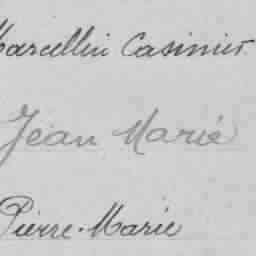 Marcellin Casimir
Jean Marie
Pierre-Marie